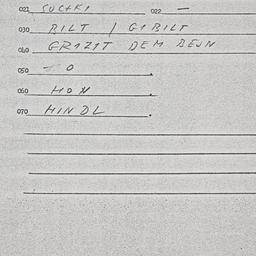 021 SUCHKI 022 —
030 RILT / GIBILT
040 GRIZIT DEM BEJN
050 - O .
060 HON .
070 HINDL .